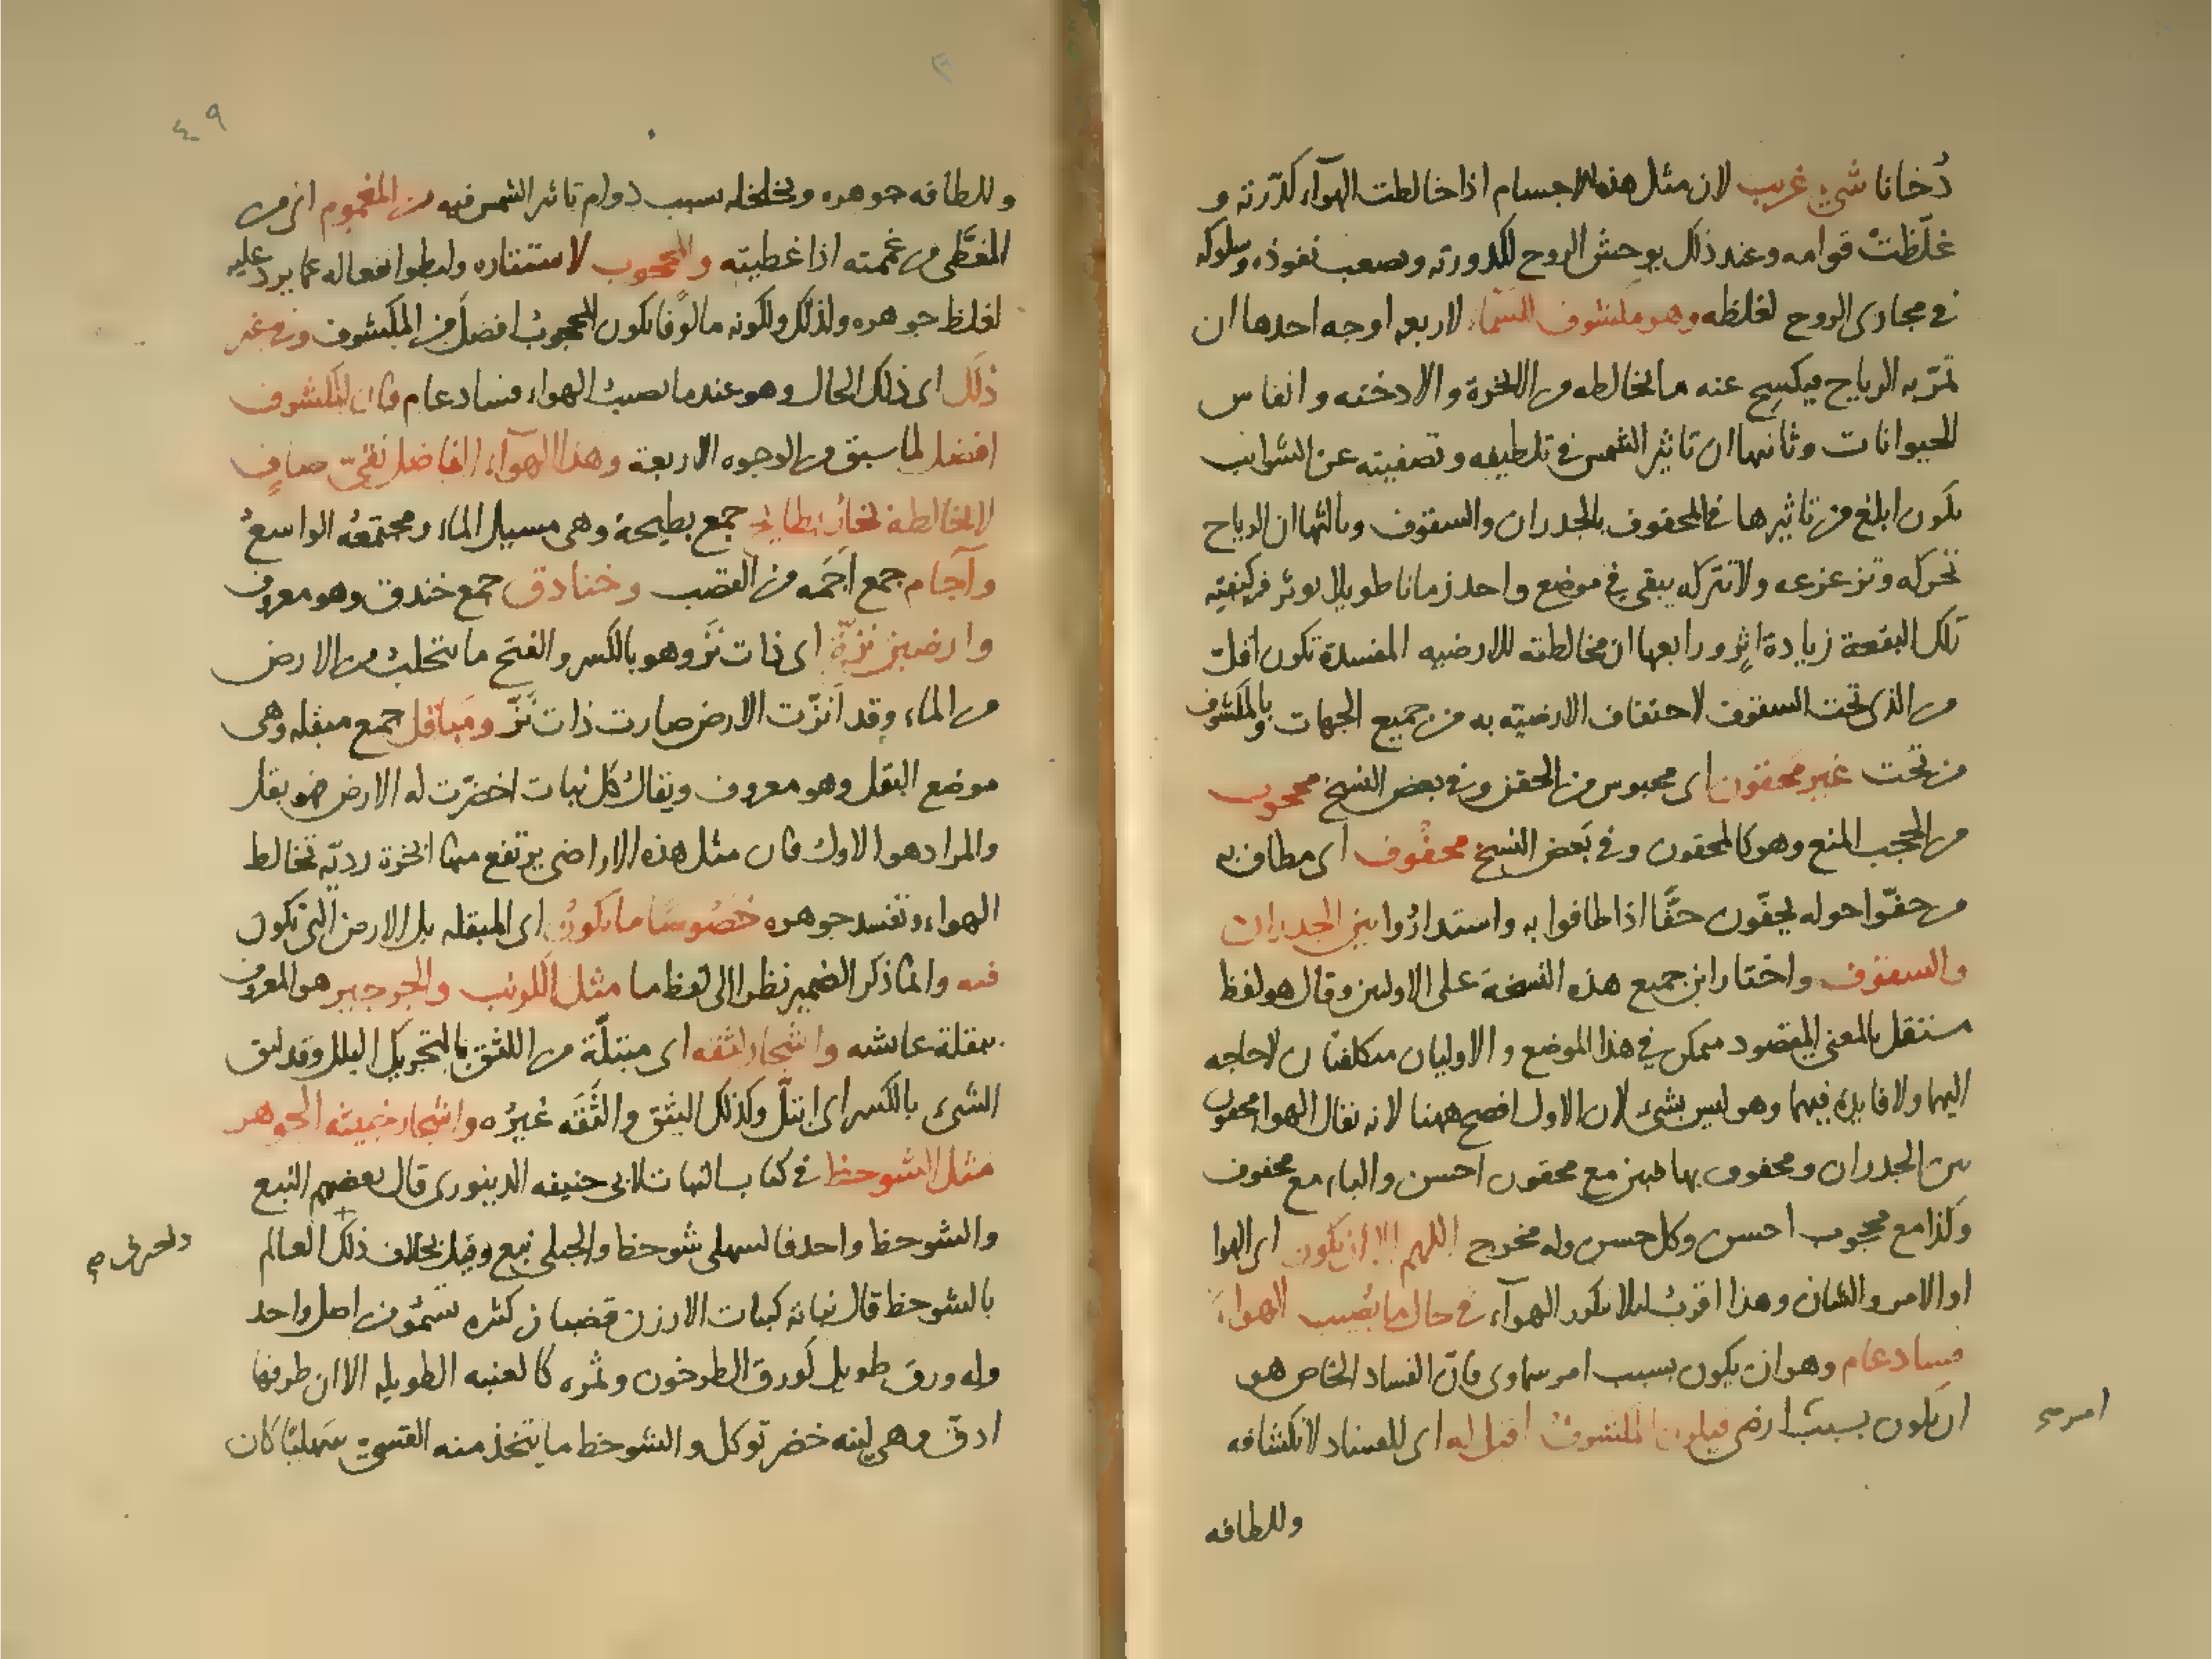 دُخانا شيء غريب لان مثل هذه الاجسام اذا خالطت الهوآء كدّرته و
غلّظتْ قوامه وعند ذلك يوحش الروح لكدورته ويصعب نفوذه وسلوكه
في مجارى الروح لغلظه وهو مكشوف السّماء لاربعه اوجه احدها ان
تمرّ به الرياح فيكسِح عنه ما يخالطه من الابخرة والادخنه وانفاس
الحيوانات وثانيها ان تاثير الشمس في تلطيفه وتصفيته عن الشوايب
يكون ابلغ من تاثيرها في المحفوف بالجدران والسقوف وثالثها ان الرياح
تحركه وتزعزعه ولا تتركه يبقى في موضع واحد زمانا طويلا يوثر فيه كيفيّه
تلك البقعة زيادة اثرٍ ورابعها ان مخالطته للارضيه المفسدة تكون اقلّ
من الذى تحت السقوف لاحتفاف الارضيّه به من جميع الجهات وبالمكشوف
من تحت غير محقون اى محبوس من الحقن وفي بعض النسخ محجوب
من الحجب المنع وهو كالمحقون وفي بعض النسخ محفُوف اى مطاف به
من حفّوا حوله يحفّون حفًّا اذا طافوا به واستدارُوا بين الجدران
والسقوف واختار ابن جميع هذه النسخة على الاوليين وقال هو لفظ
مستقل بالمعنى المقصود متمكن في هذا الموضع والاوليان متكلفتان لا حاجه
اليهما ولا فايدة فيهما وهو ليس بشيء لان الاول افصح ههنا لانه يقال الهوا محقون
بين الجدران ومحفوف بها فبين مع محقون احسن والباء مع محفوف
وكذا مع محجوب احسن وكل حسن وله مخرج اللهم الا ان يكون اى الهوا
او الامر والشان وهذا اقربُ ليلا يتكرر الهوآء في حال ما يُصيب الهواءَ
فساد عام وهو ان يكون بسبب امر سماوى فانّ الفساد الخاص هو
ان يكون بسبب ارضى فيكون المكشوفُ اقبل له اى للفساد لانكشافه
امر صح
وللطافه
٤٩
وللطافه جوهره وتخلخله بسبب دوام تاثير الشمس فيه من المغموم اى من
المغطَّى من غممته اذا غطيته والمحجوب لاستتاره ولبطو انفعاله عما يرد عليه
لغلظ جوهره ولذلك ولكونه مالوفًا يكون المحجوبُ افضلَ من المكشوف وفي غير
ذلك اى ذلك الحال وهو عندما يصيبُ الهواء فساد عام فان المكشوف
افضل لما سبق من الاوجوه الاربعة وهذا الهوآء الفاضل نقيّ صافٍ
لا يخالطه بخارُ بطايح جمع بطيحة وهى مسيل الماء ومجتمعُه الواسعُ
وآجام جمع اَجَمه من القصب وخنادق جمع خندق وهو معروف
وارضين نزّة اى ذات نزّ وهو بالكسر والفتح ما يتحلبُ من الارض
من الماء وقد اَنزّت الارض صارت ذات نزّ ومَباقل جمع مبقله وهى
موضع البقل وهو معروف ويقالُ كل نبات اخضرّت له الارض فهو بقل
والمراد هو الاول فان مثل هذه الاراضى يرتفع منها ابخرة رديّه تخالط
الهواء وتفسد جوهره خصُوصًا ما يكونُ اى المبقله بل الارض التى تكون
فيه وانما ذكر الضمير نظرا الى لفظ ما مثل الكرنب والجرجير هو المعروف
ببقلة عايشه واشجار لثقه اى مبتلّة من اللثق بالتحريك البلل وقد لثق
الشىء بالكسر اى ابتلّ وكذلك البثق والثَّقَه غيرُه واشجار خبيثه الجوهر
مثل الشوحط في كتاب النبات لابى حنيفه الدينورى قال بعضهم النبع
والشوحط واحد فالسهلى شوحط والجبلى نبع وقيل بخلاف ذلك العالم
بالشوحط قال نباته كنبات الارزن قضبان كثيره تسمُو من اصل واحد
وله ورق طويل كورق الطرخون وثمره كالعنبه الطويله الا ان طرفها
ادقّ وهى لينه خضر توكل والشوحط ما يتخذ منه القسىّ سَهليًا كان